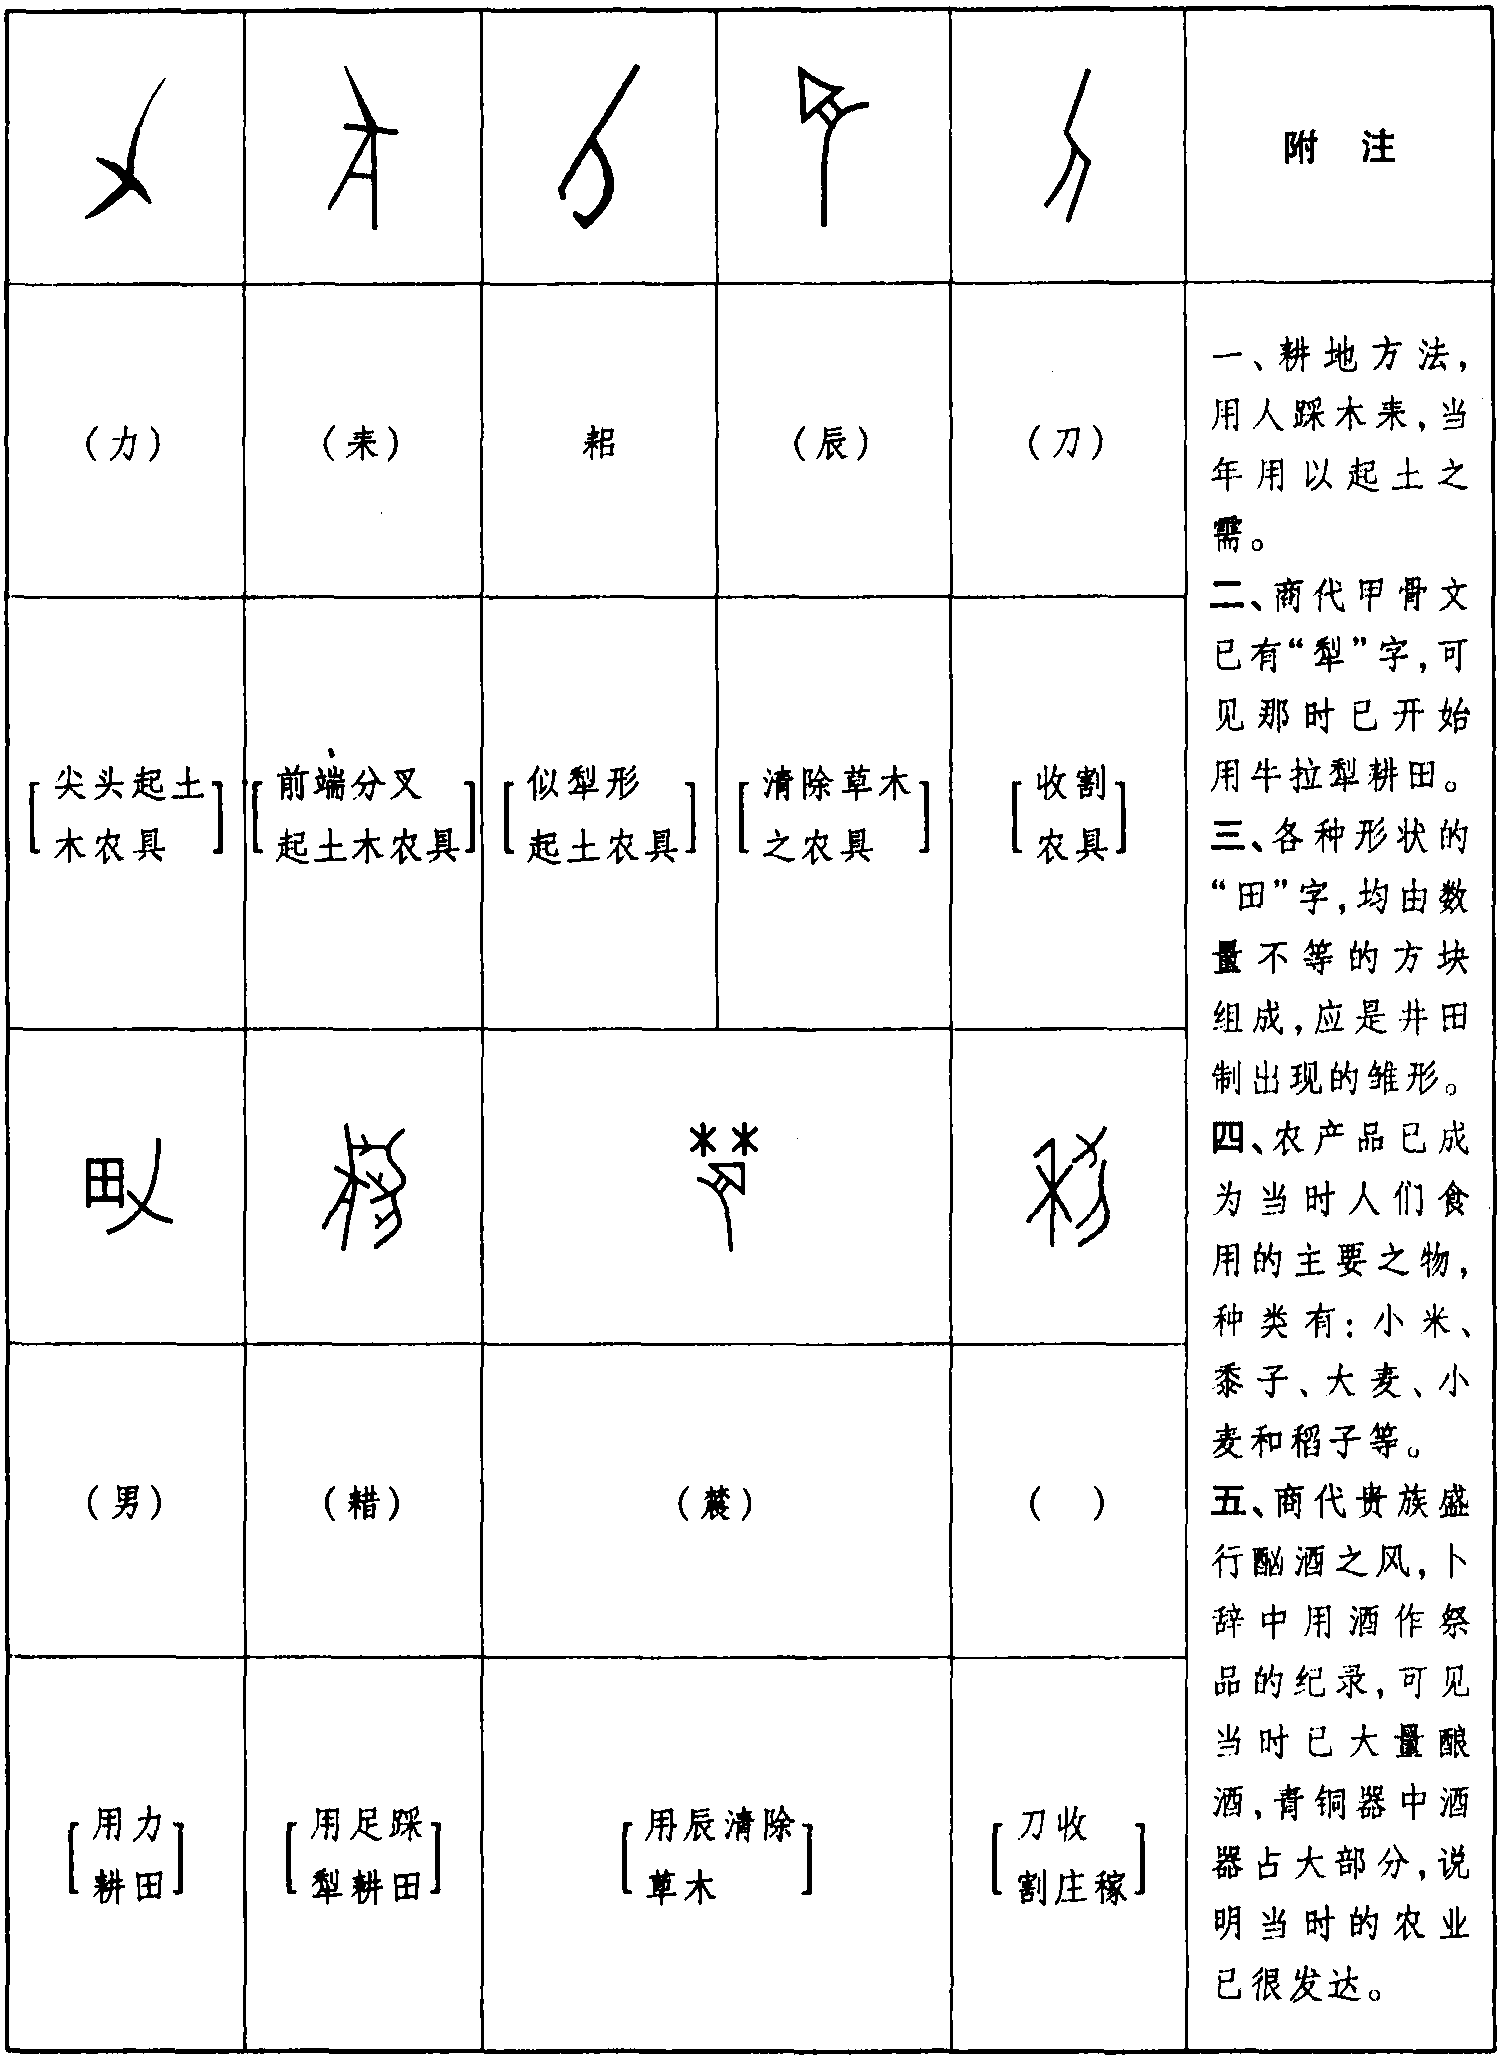 附 注
（力）
（耒）
耜
（辰）
（刀）
尖头起土
木农具
前端分叉
起土木农具
似犁形
起土农具
清除草木
之农具
收割
农具
（男）
（耤）
（蓐）
（ ）
用力
耕田
用足踩
犁耕田
用辰清除
草木
刀收
割庄稼
一、耕地方法，
用人踩木耒，当
年用以起土之
需。
二、商代甲骨文
已有“犁”字，可
见那时已开始
用牛拉犁耕田。
三、各种形状的
“田”字，均由数
量不等的方块
组成，应是井田
制出现的雏形。
四、农产品已成
为当时人们食
用的主要之物，
种类有：小米、
黍子、大麦、小
麦和稻子等。
五、商代贵族盛
行酗酒之风，卜
辞中用酒作祭
品的纪录，可见
当时已大量酿
酒，青铜器中酒
器占大部分，说
明当时的农业
已很发达。